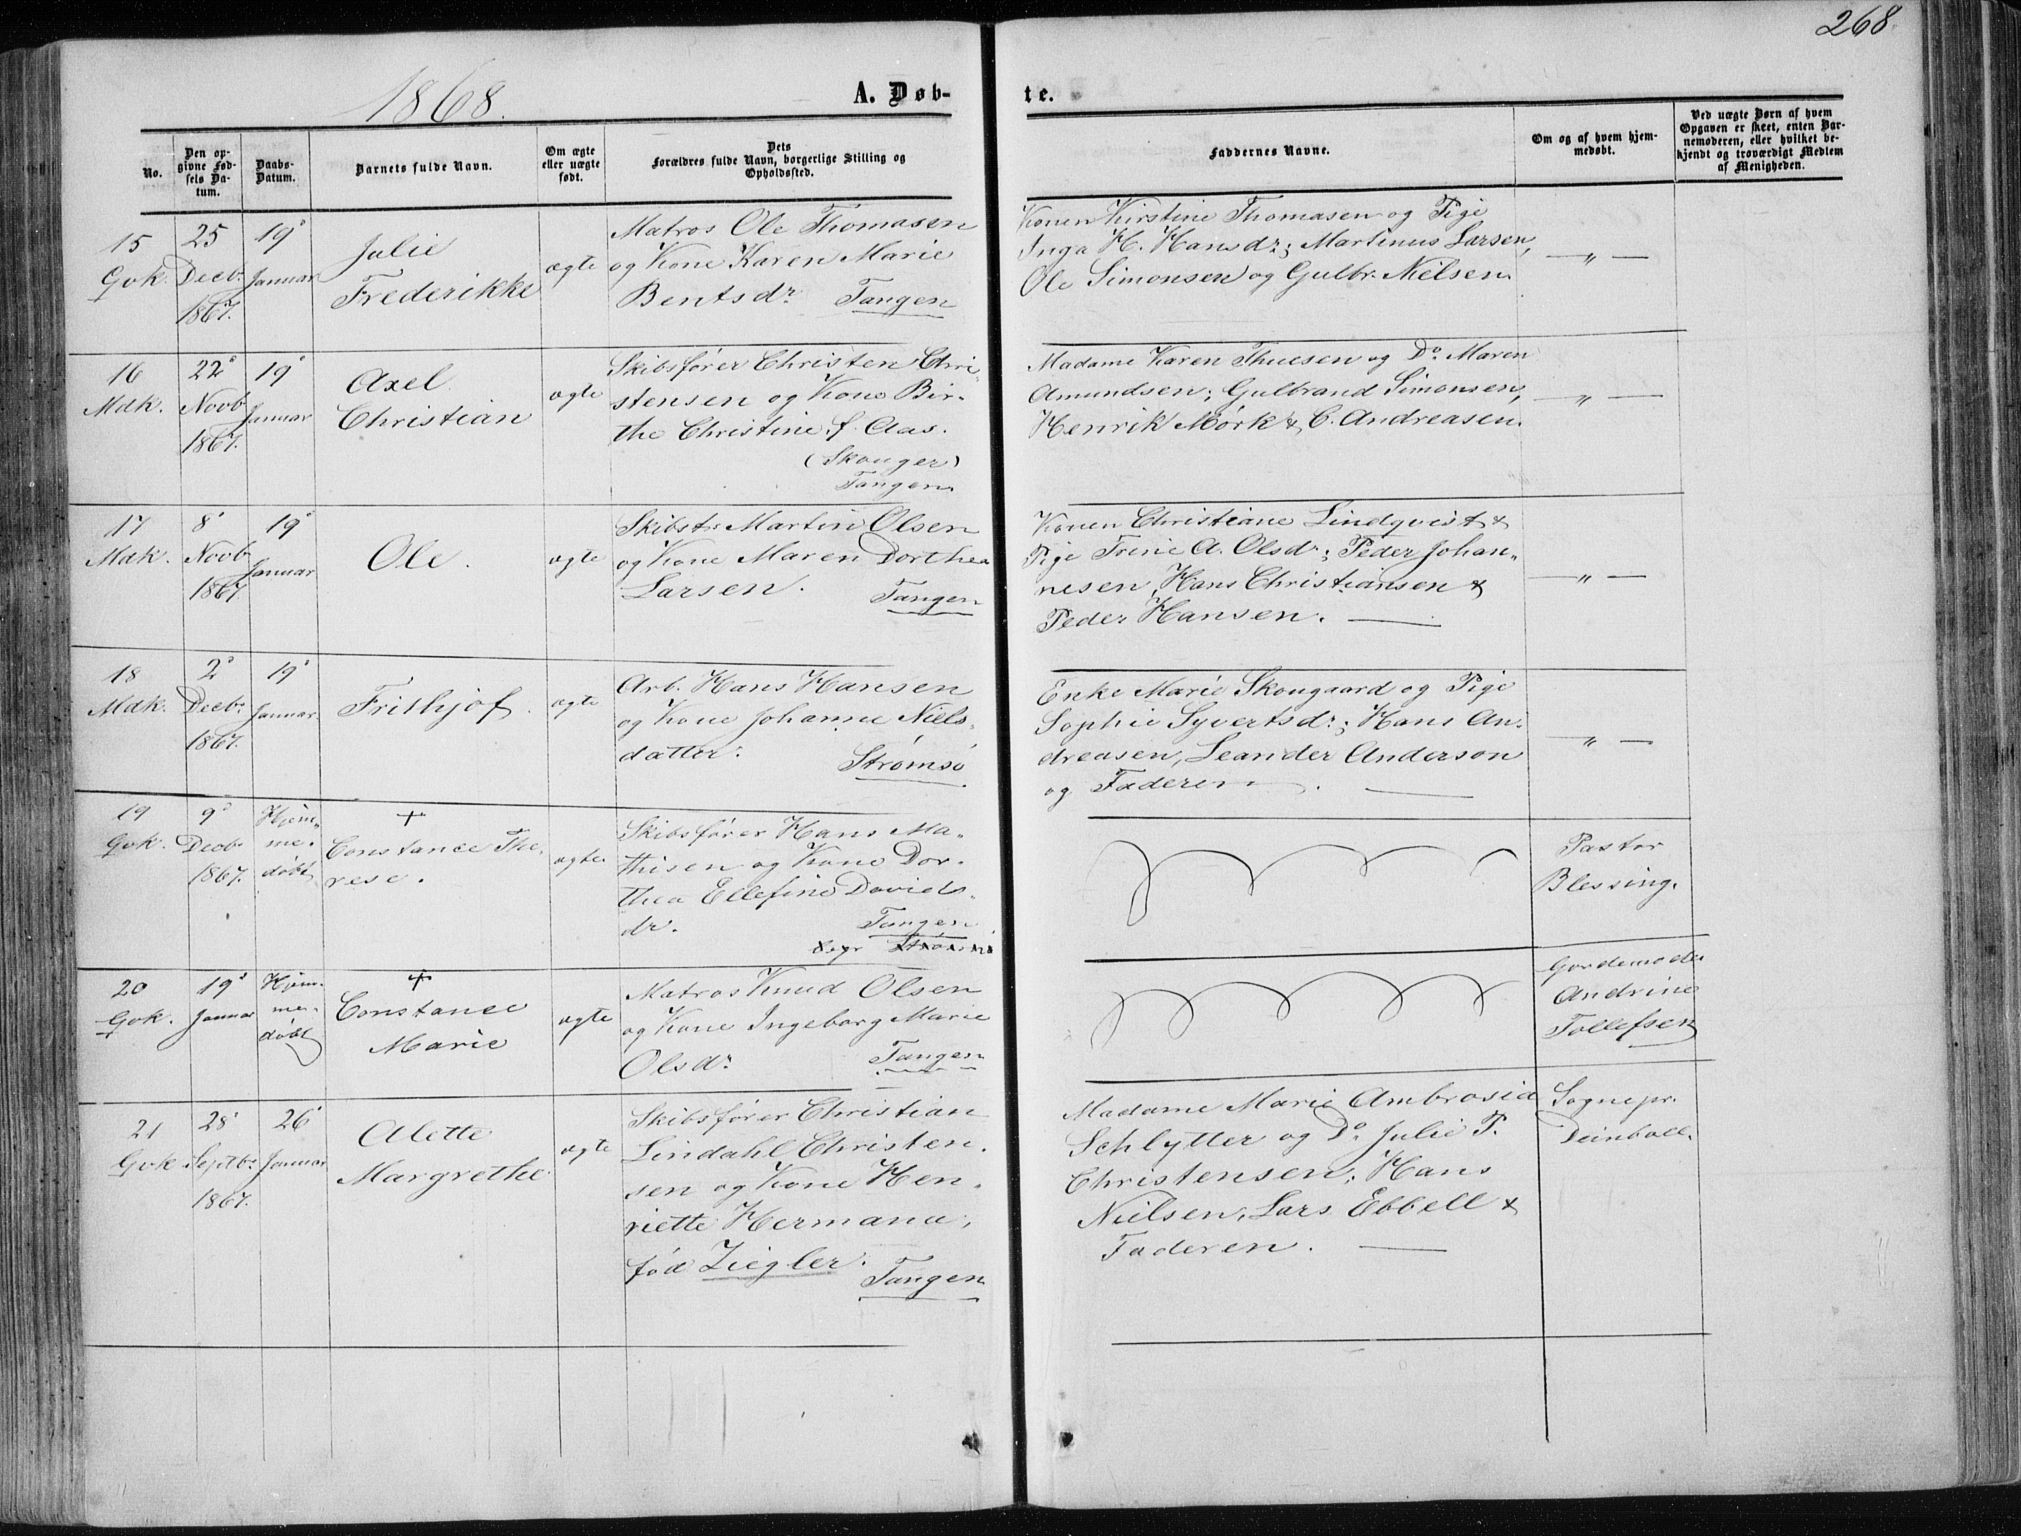 268.
1868.
A. Døb-
te.
No.
Den op-
givne Fød-
sels Da-
tum.
Daabs-
Datum.
Barnets fulde Navn.
Om ægte
eller uægte
født.
Dets
Forældres fulde Navn, borgerlige Stilling og
Opholdssted.
Faddernes Navne.
Om og af hvem hjem-
medøbt.
Ved uægte Børn af hvem
Opgaven er skeet, enten Bar-
nemoderen, eller hvilket be-
kjendt og troværdigt Medlem
af Menigheden.
15
Gvk.
25
Decbr
1867.
19
Januar
Julie
Frederikke
ægte
Matros Ole Thomasen
og Kone Karen Marie
Bentsdr Tangen
Konen Kirstine Thomasen og Pige
Inga H. Hansdr; Martinus Larsen,
Ole Simonsen og Gulbr. Nielsen.
— " —
16
Mdk.
22
Novb
1867.
19
Januar
Axel
Christian
ægte
Skibsfører Christen Chri-
stensen og Kone Bir-
the Christine f. Aas.
(Skouger)
Tangen
Madame Karen Thuesen og Do Maren
Amundsen; Gulbrand Simonsen,
Henrik Mørk & C. Andreasen.
— " —
17
Mdk.
8
Novb
1867
19
Januar
Ole.
ægte
Skibstr Martin Olsen
og Kone Maren Dorthea
Larsen.
Tangen
Konen Christiane Lindqvist &
Pige Trine A. Olsdr; Peder Johan-
nesen, Hans Christiansen &
Peder Hansen. —
— " —
18
Mdk.
2
Decbr
1867.
19
Januar
Frithjof.
ægte
Arb. Hans Hansen
og Kone Johanne Niels-
datter.
Strømsø
Enke Marie Skougaard og Pige
Sophie Syvertsdr; Hans An-
dreasen, Leander Anderson
og Faderen. —
— " —
19
Gvk.
9
Decbr
1867.
Hjem-
me-
døbt
+
Constance The-
rese.
ægte
Skibsfører Hans Ma-
thisen og Kone Dor-
thea Ellefine Davids-
dr.
Tangen
Pastor
Blessing.
20
Gvk.
19
Januar
Hjem-
me-
døbt
+
Constance
Marie
ægte
Matros Knud Olsen
og Kone Ingeborg Marie
Olsdr
Tangen
Gordemoder
Andrine
Tollefsen
21
Gvk
28
Septbr
1867.
26
Januar
Alette
Margrethe
ægte
Skibsfører Christian
Lindahl Christen-
sen og Kone Hen-
riette Hermana,
fød Ziegler.
Tangen
Madame Marie Ambrosia
Schlytter og Do Julie P.
Christensen; Hans
Nielsen, Lars Ebbell &
Faderen. —
Sognepr.
Deinboll.